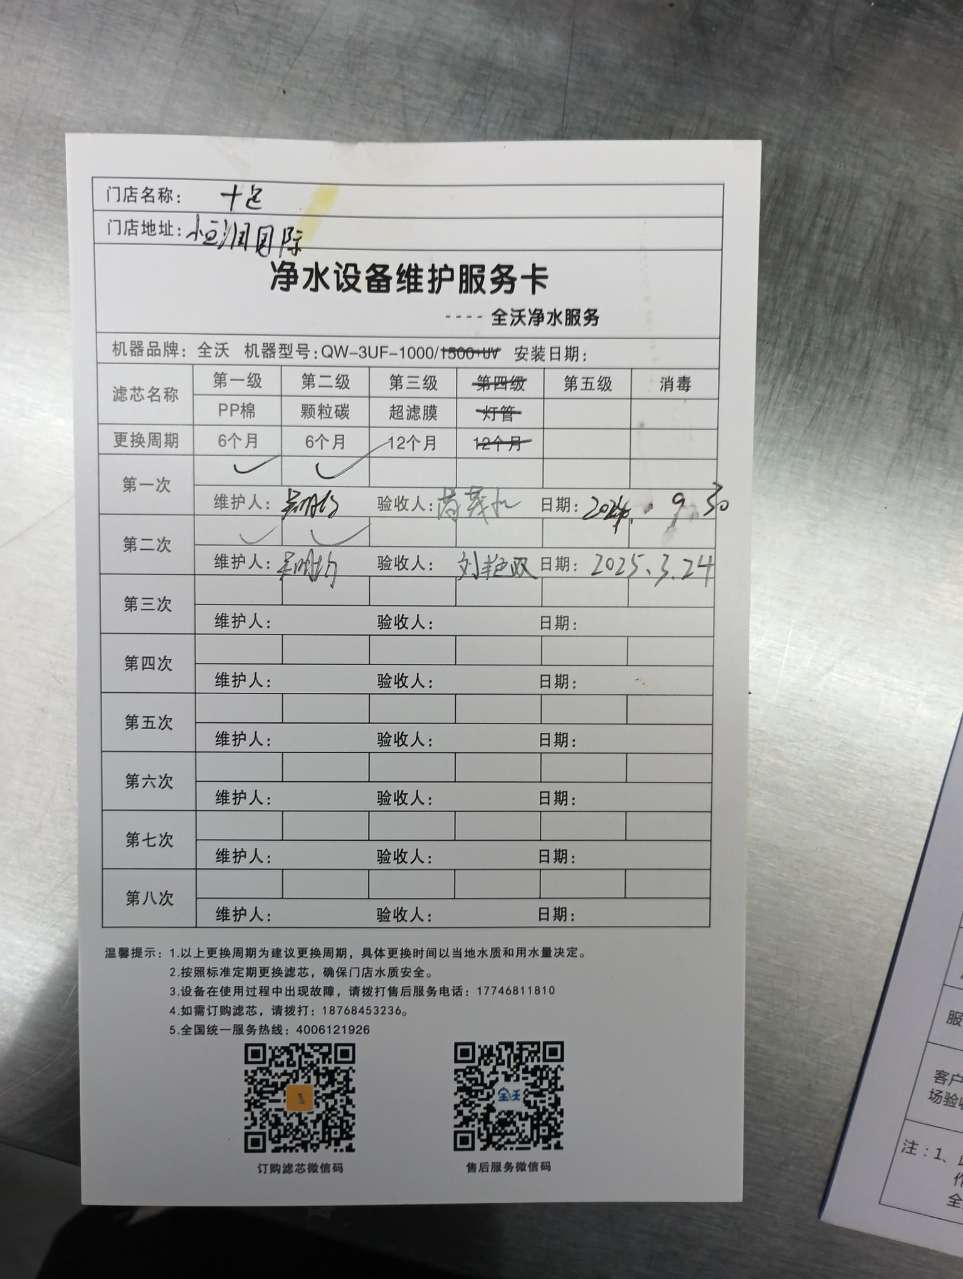 门店名称：
门店地址：恒润国际
净水设备维护服务卡
----全沃净水服务
机器品牌：全沃 机器型号：QW-3UF-1000/1500+UV 安装日期：
滤芯名称 第一级 第二级 第三级 第四级 第五级 消毒
PP棉 颗粒碳 超滤膜 灯管
更换周期 6个月 6个月 12个月 12个月
第一次 ✓ ✓
维护人： 验收人： 日期：2024.9.30
第二次 ✓ ✓
维护人： 验收人：刘艳双 日期：2025.3.24
第三次
维护人： 验收人： 日期：
第四次
维护人： 验收人： 日期：
第五次
维护人： 验收人： 日期：
第六次
维护人： 验收人： 日期：
第七次
维护人： 验收人： 日期：
第八次
维护人： 验收人： 日期：
温馨提示：1.以上更换周期为建议更换周期，具体更换时间以当地水质和用水量决定。
2.按照标准定期更换滤芯，确保门店水质安全。
3.设备在使用过程中出现故障，请拨打售后服务电话：17746811810
4.如需订购滤芯，请拨打：18768453236。
5.全国统一服务热线：4006121926
全沃
订购滤芯微信码 售后服务微信码
服
客户
场验收
注：1、
作
全